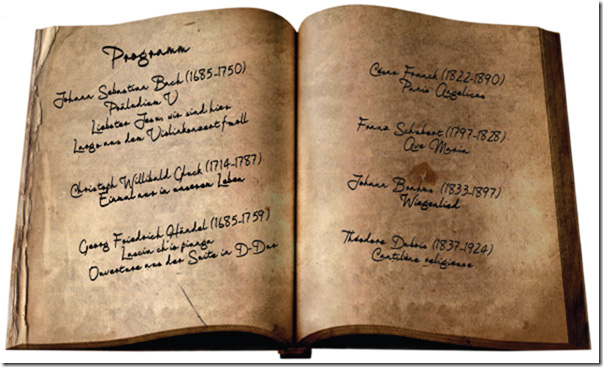 Programm
Johann Sebastian Bach (1685-1750)
Präludium V
Liebster Jesu wir sind hier
Largo aus dem Violinkonzert f-moll
Christoph Willibald Gluck (1714-1787)
Einmal nur in unserem Leben
Georg Friedrich Händel (1685-1759)
Lascia ch'io pianga
Ouvertüre aus der Suite in D-Dur
César Franck (1822-1890)
Panis Angelicus
Franz Schubert (1797-1828)
Ave Maria
Johann Brahms (1833-1897)
Wiegenlied
Théodore Dubois (1837-1924)
Cantilène religieuse